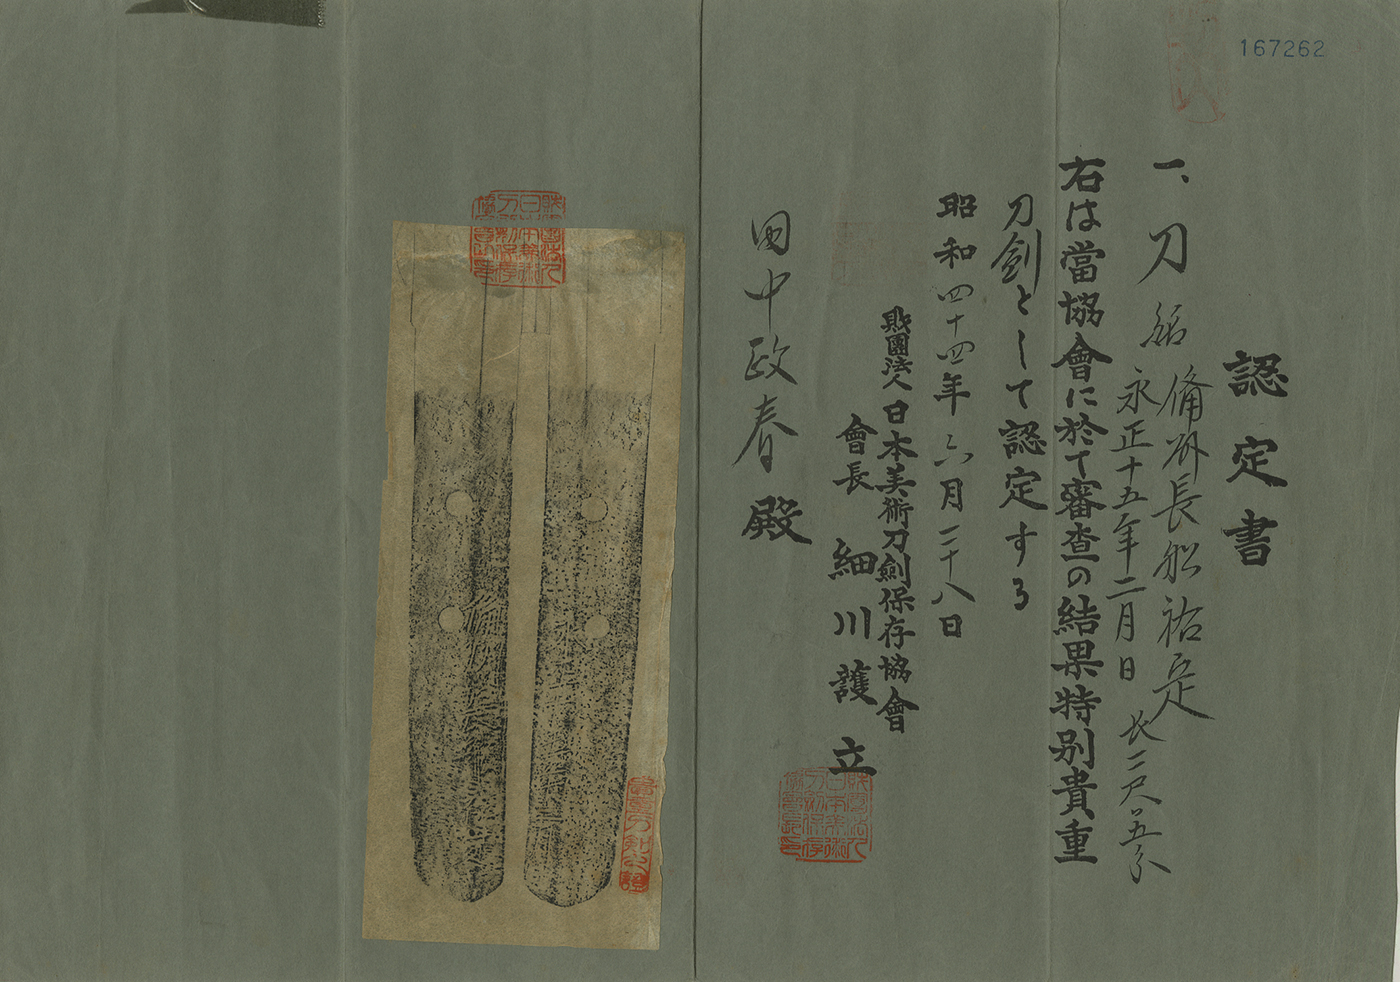 167262
認定書
一、刀 銘 備州長船祐定
永正十五年二月日 長二尺〇五分
右は當協會に於て審査の結果特別貴重
刀劍として認定する
昭和四十四年六月二十八日
財團法人日本美術刀劍保存協會
會長 細川護立
田中政春殿